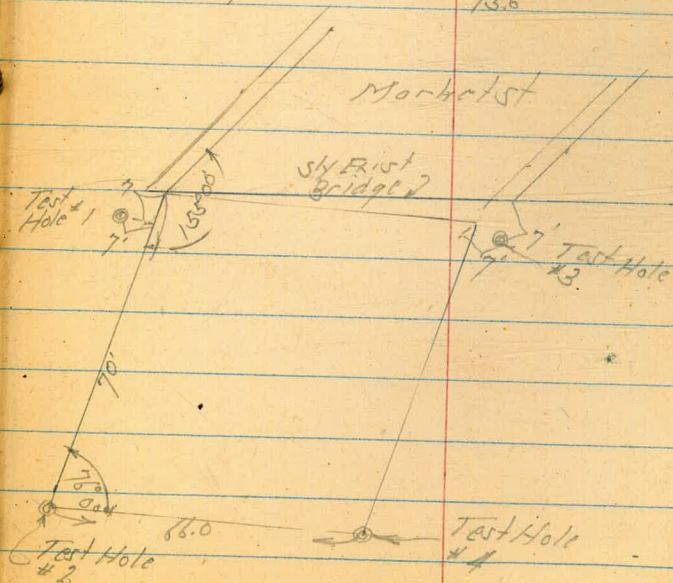 13.0
Market St
Sly Exist
Bridge
Test
Hole #1
7'
7'
155°00'
7'
7'
Test Hole
#3
70'
76°
00'
66.0
Test Hole
#2
Test Hole
#4